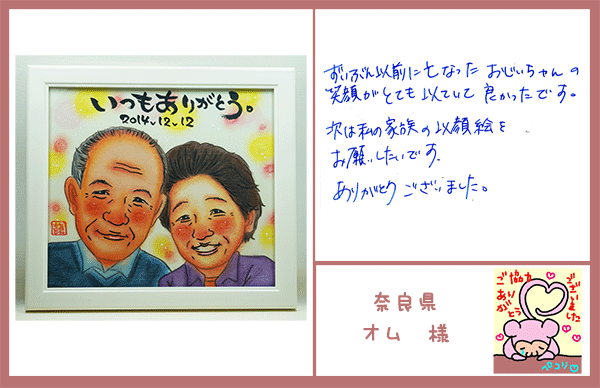 いつもありがとう。
2014.12.12
ずいぶん以前に亡なった おじいちゃんの
笑顔がとても似ていて 良かったです。
次は私の家族の似顔絵を
お願いしたいです。
ありがとうございました。
奈良県
オム 様
ご協力
ありがとう
ございました
ペコリ